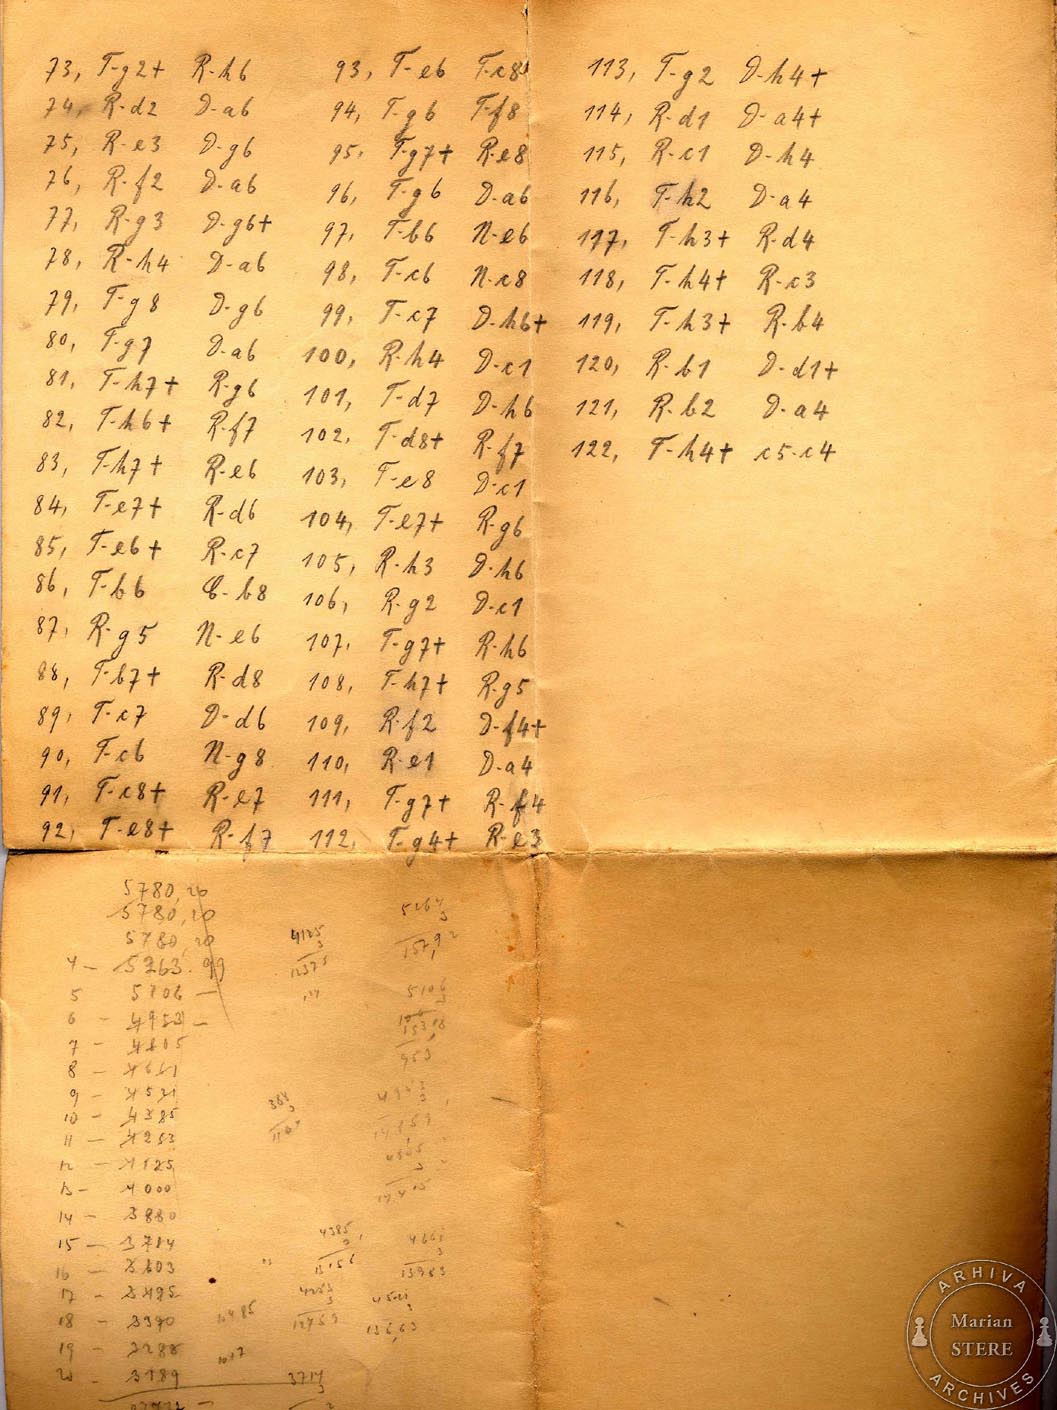 73, T-g2+ R-h6
74, R-d2 D-a6
75, R-e3 D-g6
76, R-f2 D-a6
77, R-g3 D-g6+
78, R-h4 D-a6
79, T-g8 D-g6
80, T-g7 D-a6
81, T-h7+ R-g6
82, T-h6+ R-f7
83, T-h7+ R-e6
84, T-e7+ R-d6
85, T-e6+ R-c7
86, T-b6 C-b8
87, R-g5 N-e6
88, T-b7+ R-d8
89, T-c7 D-d6
90, T-c6 N-g8
91, T-c8+ R-e7
92, T-e8+ R-f7
93, T-e6 T-c8
94, T-g6 T-f8
95, T-g7+ R-e8
96, T-g6 D-a6
97, T-b6 N-e6
98, T-c6 N-c8
99, T-c7 D-h6+
100, R-h4 D-c1
101, T-d7 D-h6
102, T-d8+ R-f7
103, T-e8 D-c1
104, T-e7+ R-g6
105, R-h3 D-h6
106, R-g2 D-c1
107, T-g7+ R-h6
108, T-h7+ R-g5
109, R-f2 D-f4+
110, R-e1 D-a4
111, T-g7+ R-f4
112, T-g4+ R-e3
113, T-g2 D-h4+
114, R-d1 D-a4+
115, R-c1 D-h4
116, T-h2 D-a4
117, T-h3+ R-d4
118, T-h4+ R-c3
119, T-h3+ R-b4
120, R-b1 D-d1+
121, R-b2 D-a4
122, T-h4+ c5-c4
5780,20
5780,20
5780,20
4 - 5263.99
5 5106 -
6 - 4953 -
7 - 4805
8 - 4661
9 - 4521
10 - 4385
11 - 4253
12 - 4125
13 - 4000
14 - 3880
15 - 3714
16 - 3603
17 - 3495
18 - 3390
19 - 3288
20 - 3189
4125
3
12375
5106
3
4385
3
4661
3
13983
3714
3
ARHIVA
Marian
STERE
ARCHIVES